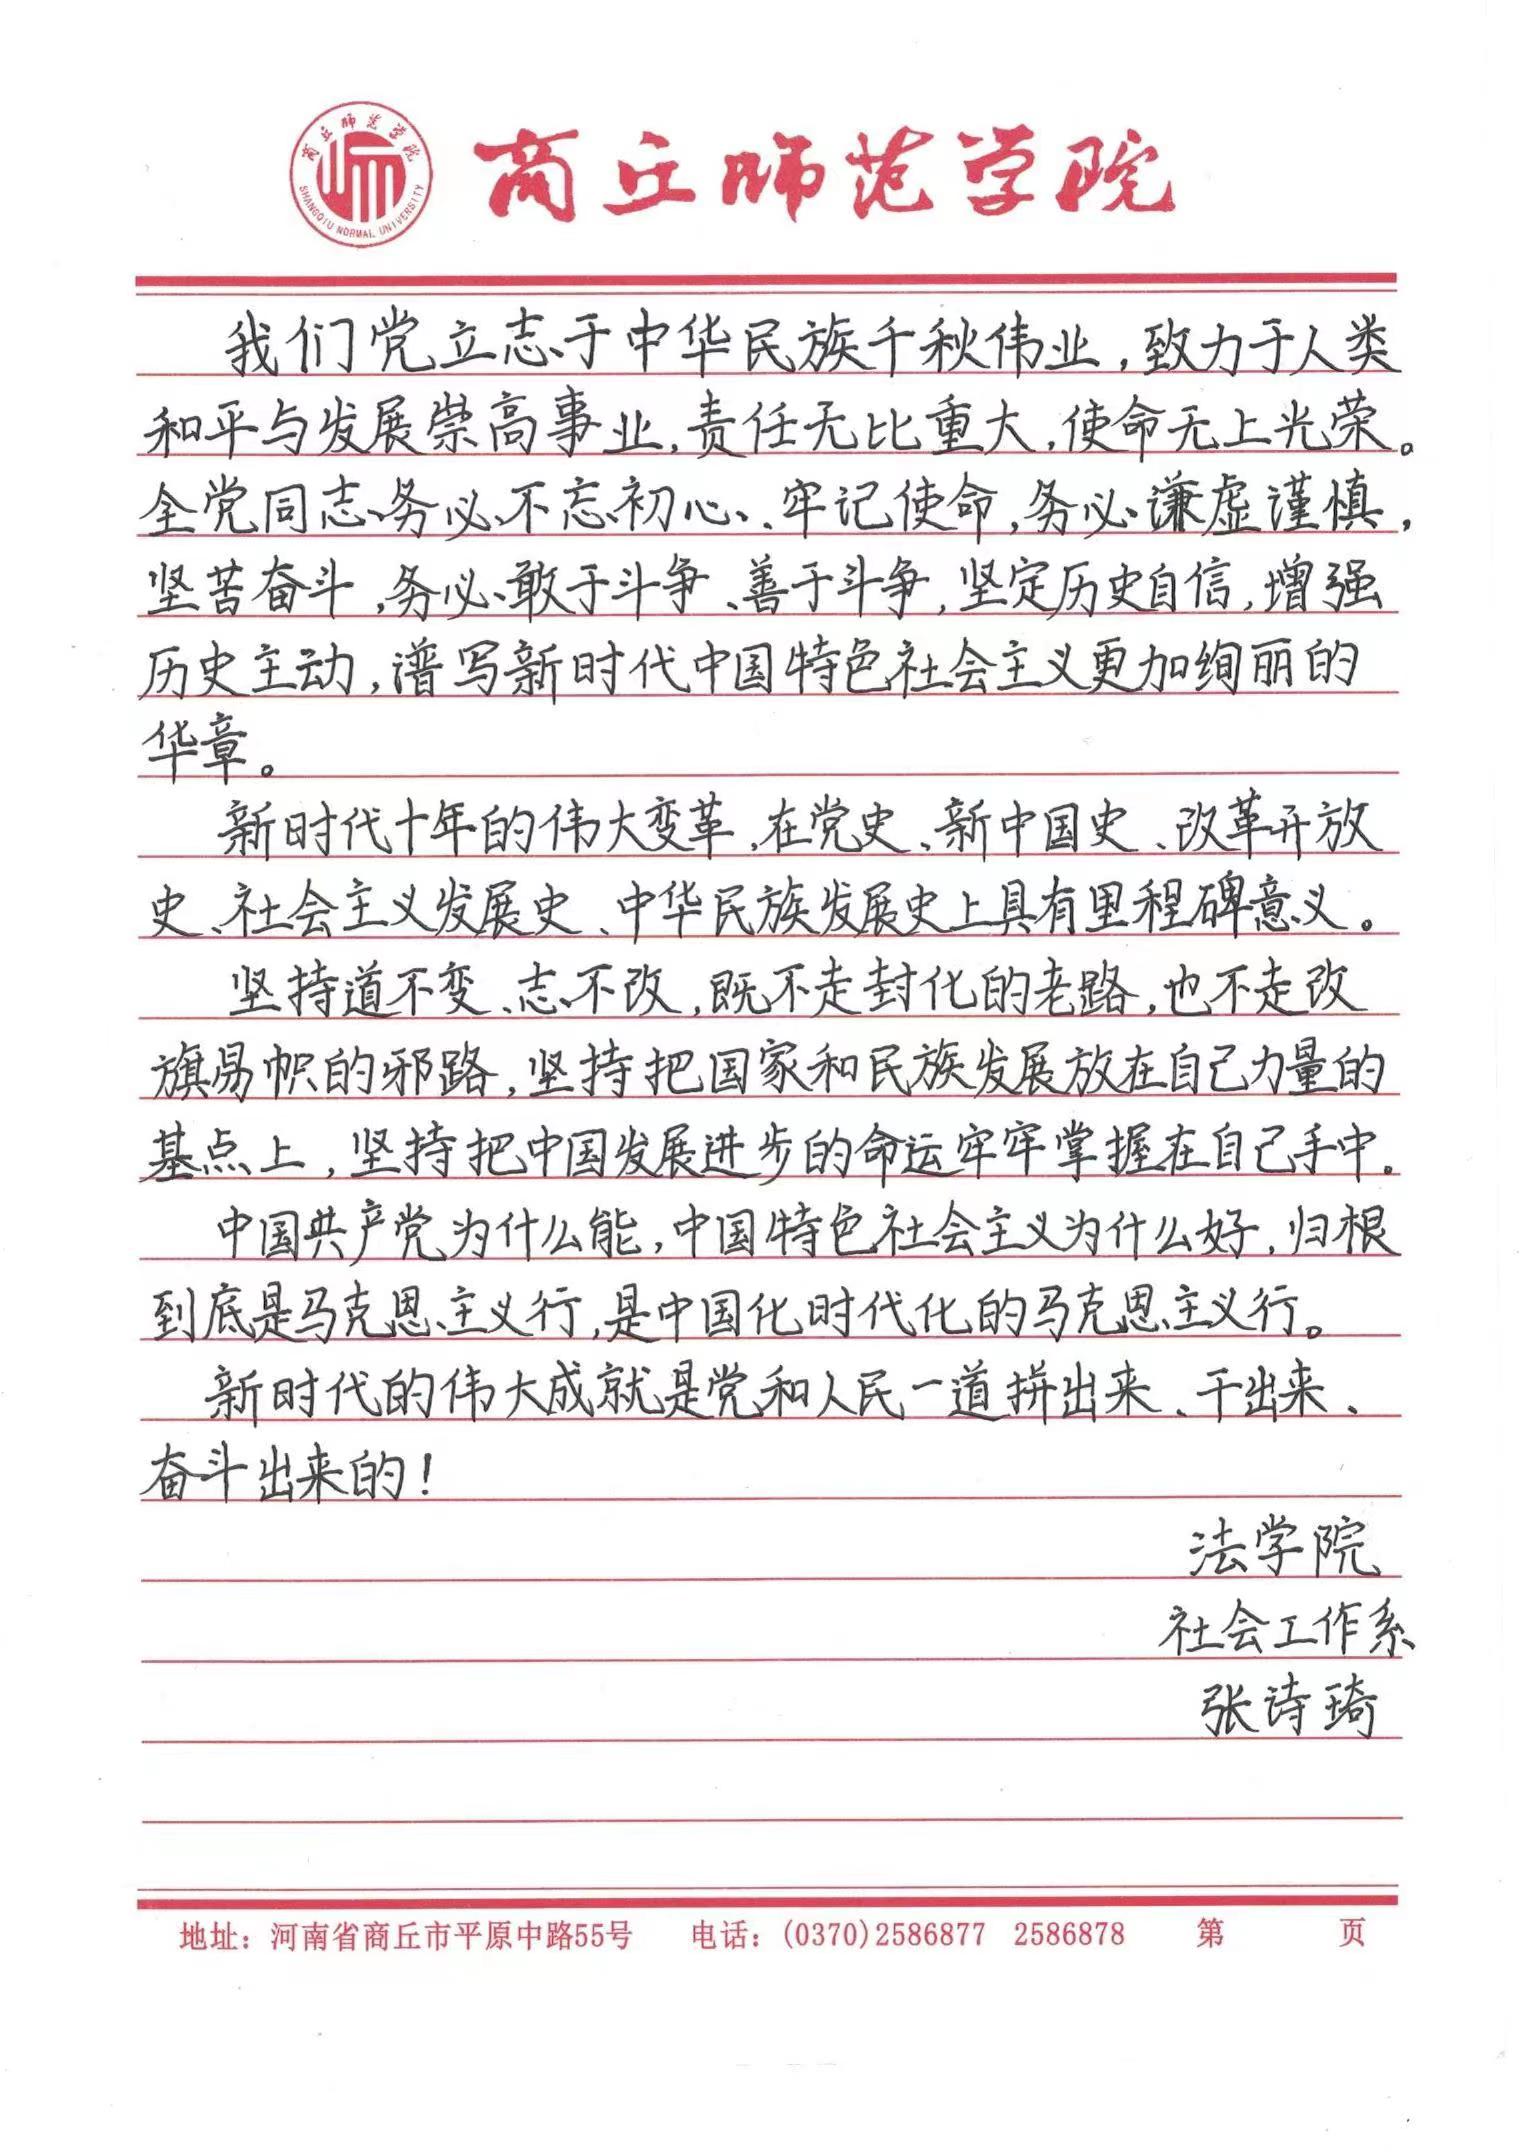 商丘师范学院
SHANGQIU NORMAL UNIVERSITY
商丘师范学院
我们党立志于中华民族千秋伟业,致力于人类
和平与发展崇高事业,责任无比重大,使命无上光荣。
全党同志务必不忘初心、牢记使命,务必谦虚谨慎,
坚苦奋斗,务必敢于斗争、善于斗争,坚定历史自信,增强
历史主动,谱写新时代中国特色社会主义更加绚丽的
华章。
新时代十年的伟大变革,在党史、新中国史、改革开放
史、社会主义发展史、中华民族发展史上具有里程碑意义。
坚持道不变、志不改,既不走封化的老路,也不走改
旗易帜的邪路,坚持把国家和民族发展放在自己力量的
基点上,坚持把中国发展进步的命运牢牢掌握在自己手中。
中国共产党为什么能,中国特色社会主义为什么好,归根
到底是马克思主义行,是中国化时代化的马克思主义行。
新时代的伟大成就是党和人民一道拼出来、干出来、
奋斗出来的!
法学院
社会工作系
张诗琦
地址:河南省商丘市平原中路55号 电话:(0370)2586877 2586878 第 页